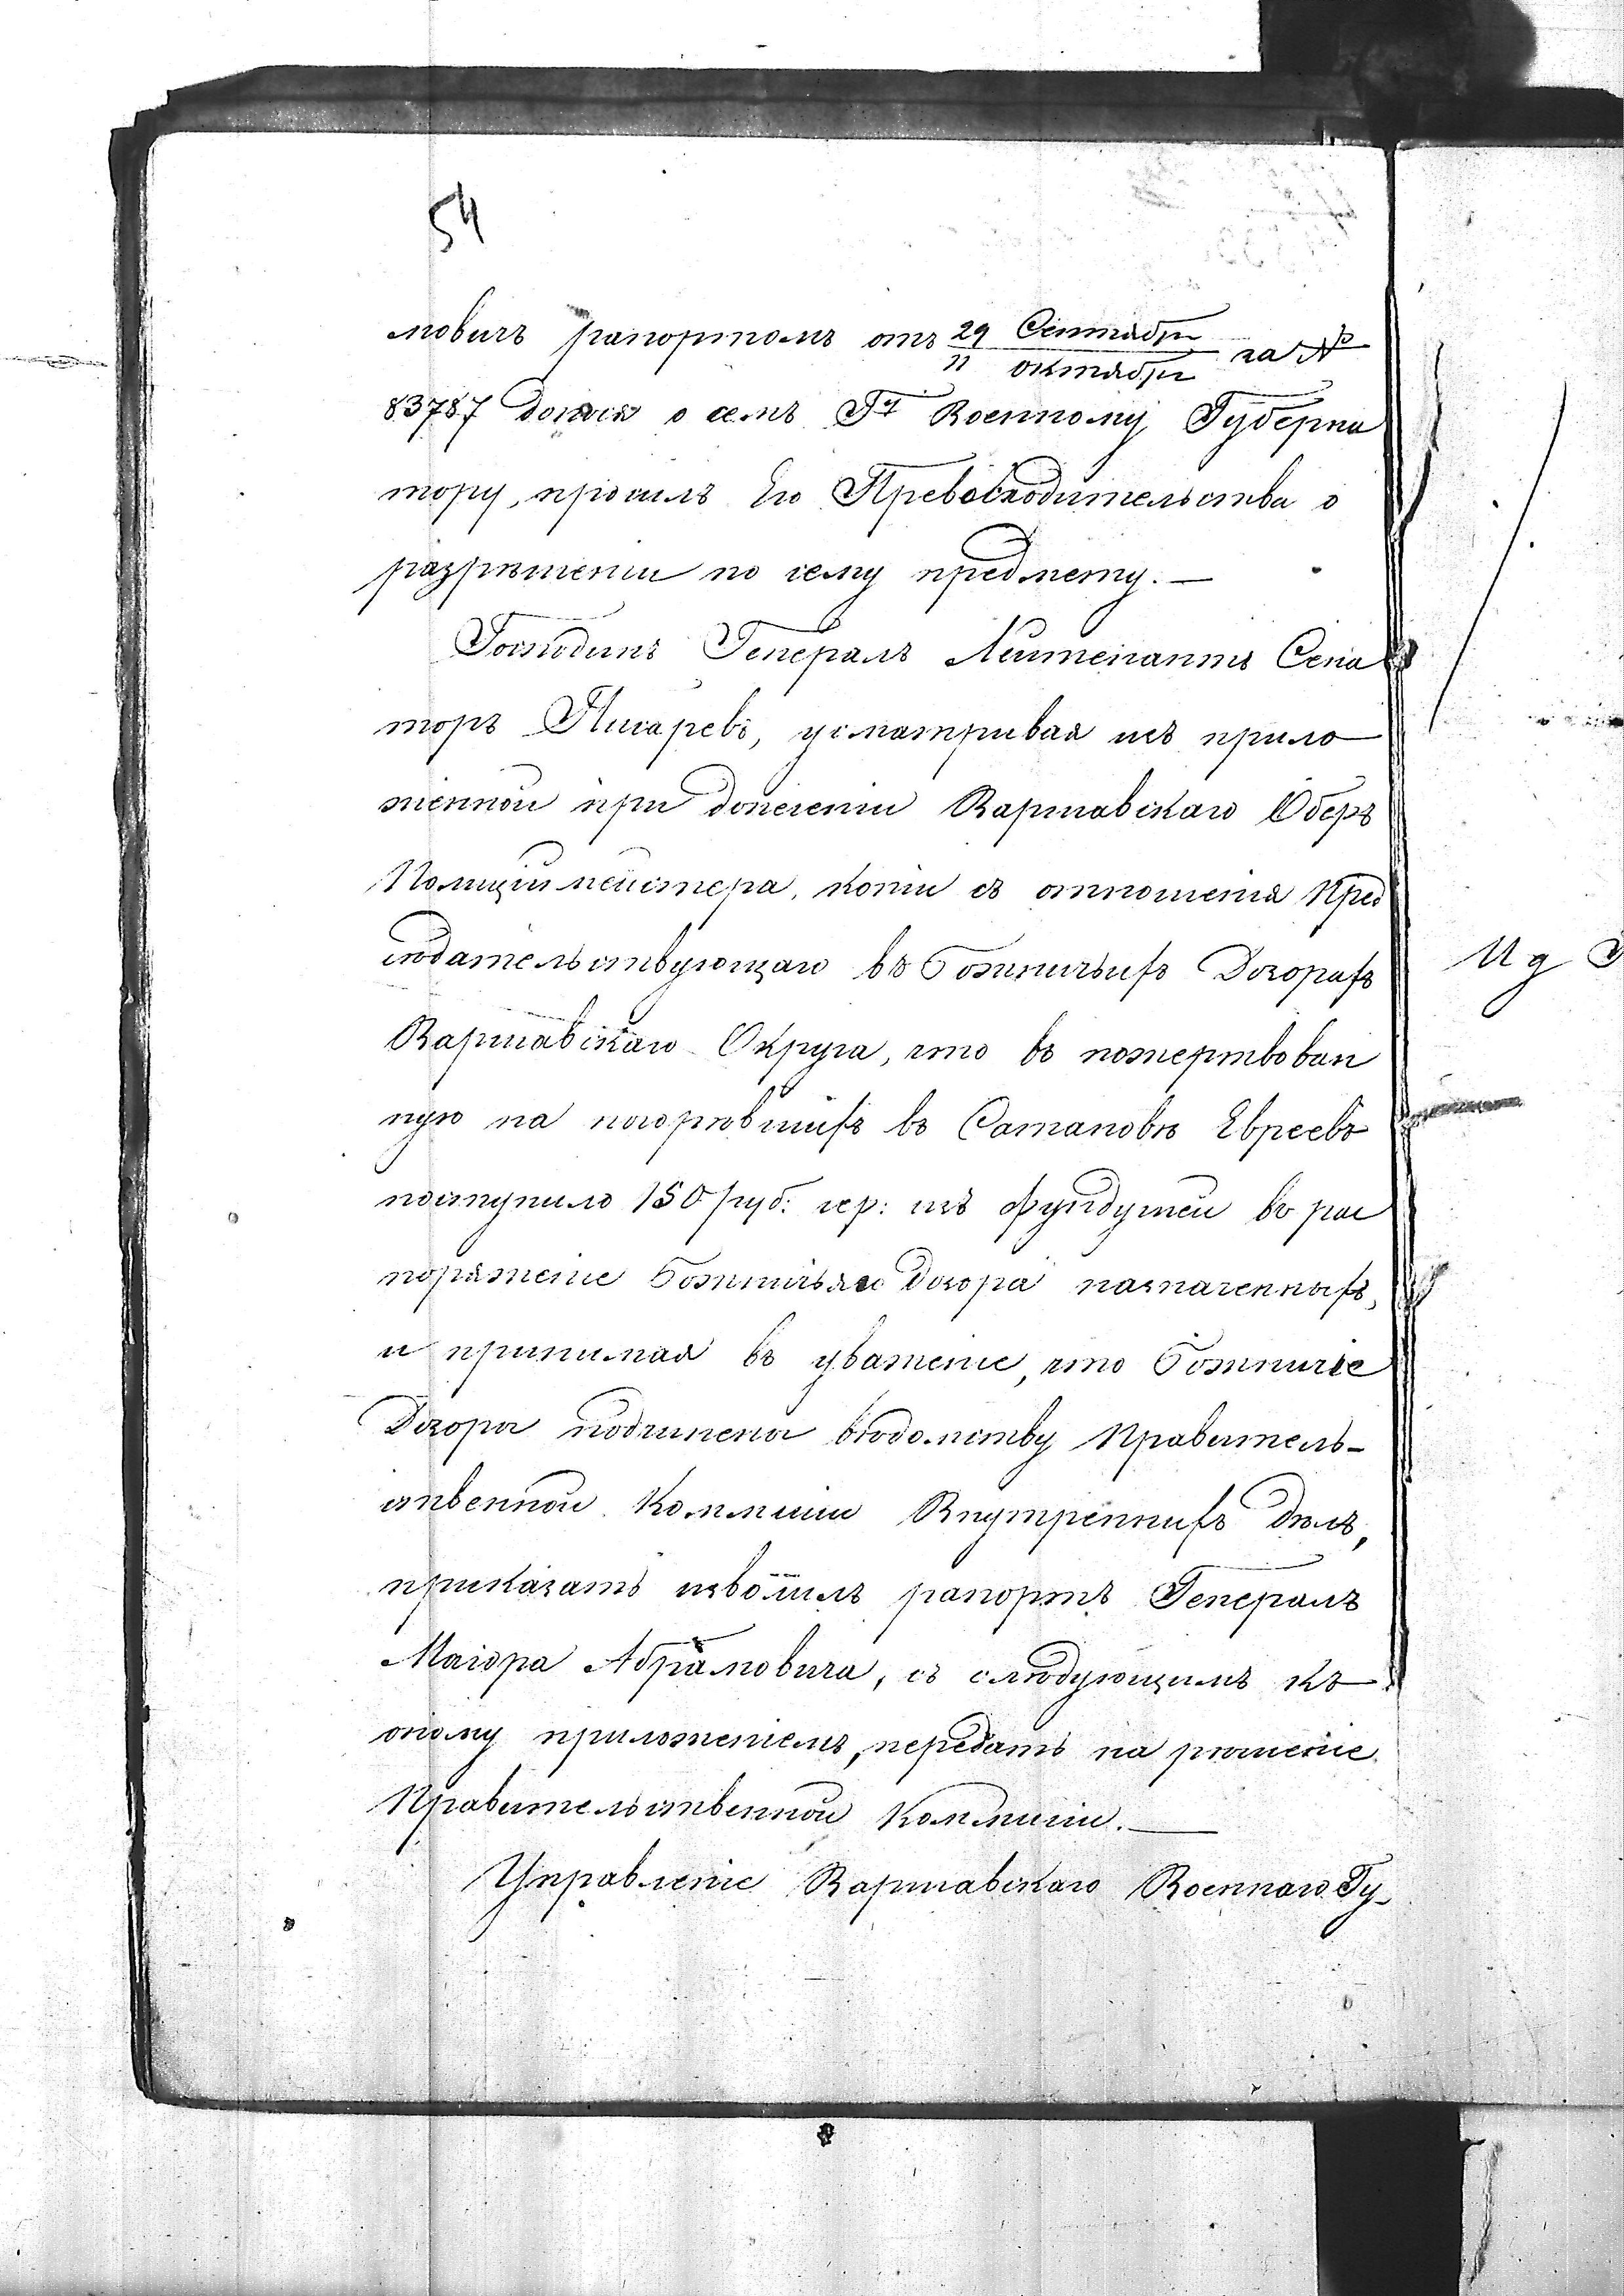 54
мовичъ рапортомъ отъ 29 Сентября / 11 октября за №
83787 донося о семъ Гну Военному Губерна
тору, просилъ Его Превосходительства о
разрѣшеніи по сему предмету. —
Господинъ Генералъ Лейтенантъ Сена
торъ Писаревъ, усматривая изъ прило
женной при донесеніи Варшавскаго Оберъ
Полицiймейстера, копіи съ отношенія Пред
сѣдательствующаго въ Божничьихъ Дозорахъ
Варшавскаго Округа, что въ пожертвован
ную на погорѣвшихъ въ Сатановѣ Евреевъ
поступило 150 руб: сер: изъ фундушей въ рас
поряженіе Божничьяго дозора назначенныхъ,
и принимая въ уваженіе, что Божничіе
Дозора подчинены вѣдомству Правитель-
ственной Коммисіи Внутреннихъ дѣлъ,
приказать изволилъ рапортъ Генералъ
Маіора Абрамовича, съ слѣдующимъ къ
оному приложеніемъ, передать на рѣшеніе
Правительственной Коммисіи. —
Управленіе Варшавскаго Военнаго Гу-